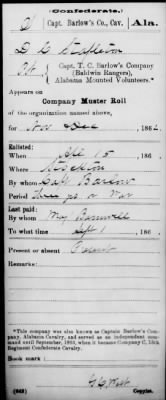 (Confederate.)
S Capt. Barlow's Co., Cav. Ala.
Pvt., Capt. T. C. Barlow's Company
(Baldwin Rangers),
Alabama Mounted Volunteers.*
Appears on
Company Muster Roll
of the organization named above,
for Nov & Dec, 186
Enlisted:
When 15, 186
Where Stockton
By whom Capt Barlow
Period three yrs or War
Last paid:
By whom Maj
To what time Sept 1, 186
Present or absent Present
Remarks:
*This company was also known as Captain Barlow's Company, Alabama Cavalry, and served as an independent command until September, 1863, when it became Company C, 15th Regiment Confederate Cavalry.
Book mark:
(642) Copyist.